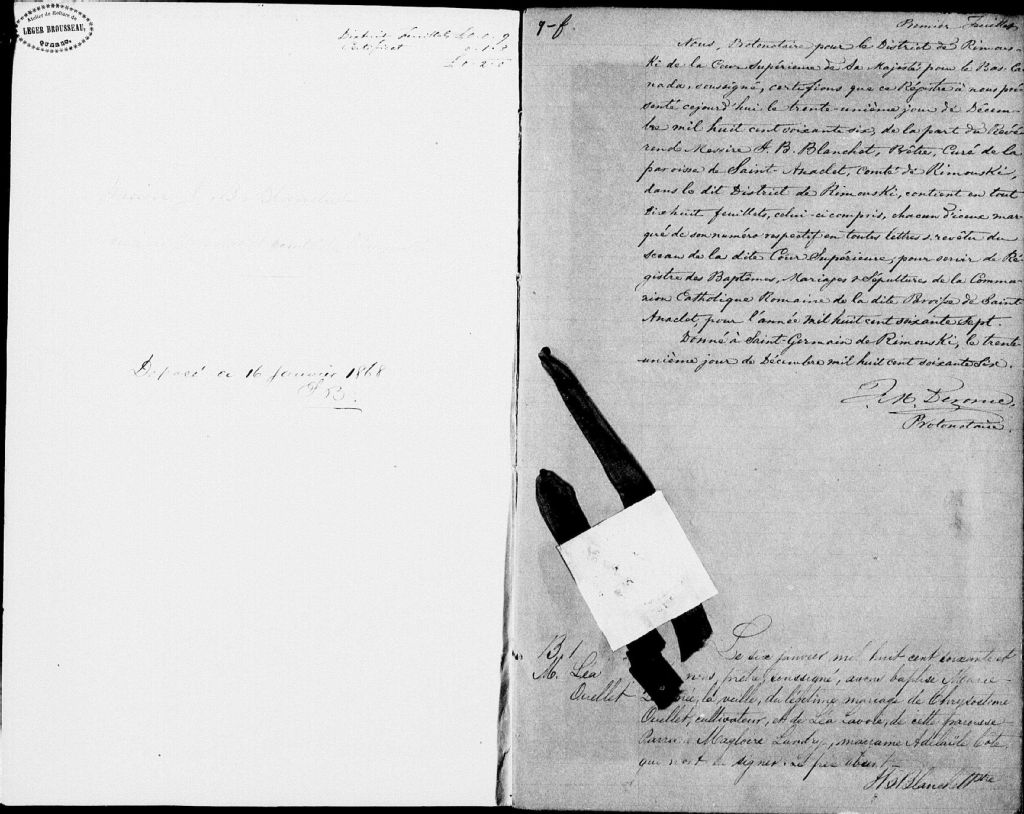 Atelier de Reliure de
LEGER BROUSSEAU,
QUEBEC.
Certificat
£0-2-5
Déposé ce 16 Janvier 1868
9-f.
Premier Feuillet
Nous, Protonotaire pour le District de Rimous-
ki de la Cour Supérieure de Sa Majesté pour le Bas-Ca
nada, soussigné, certifions que ce Régistre à nous pré
senté cejourd'hui le trente-unième jour de Décem-
bre mil huit cent soixante six, de la part du Révé
rend Messire J. B. Blanchet, Prêtre, Curé de la
paroisse de Saint-Anaclet, Comté de Rimouski,
dans le dit District de Rimouski, contient en tout
Dixhuit feuillets, celui-ci compris, chacun d'iceux mar
qué de son numéro respectif en toutes lettres & revêtu du
sceau de la dite Cour Supérieure, pour servir de Ré
gistre des Baptêmes, Mariages & Sépultures de la Commu
nion Catholique Romaine de la dite Paroisse de Saint
Anaclet, pour l'année mil huit cent soixante sept.
Donné à Saint-Germain de Rimouski, le trente
unième jour de Décembre mil huit cent soixante six.
Protonotaire.
B. 1
Le six janvier mil huit cent soixante et
M. Léa
nous, prêtre, soussigné, avons baptisé Marie
Ouellet
née, la veille, du légitime mariage de Chrysostome
Ouellet, cultivateur, et de Léa Lavoie, de cette paroisse
Parrain Magloire Landry, marraine Adélaïde Coté
qui n'ont su signer. Le père absent